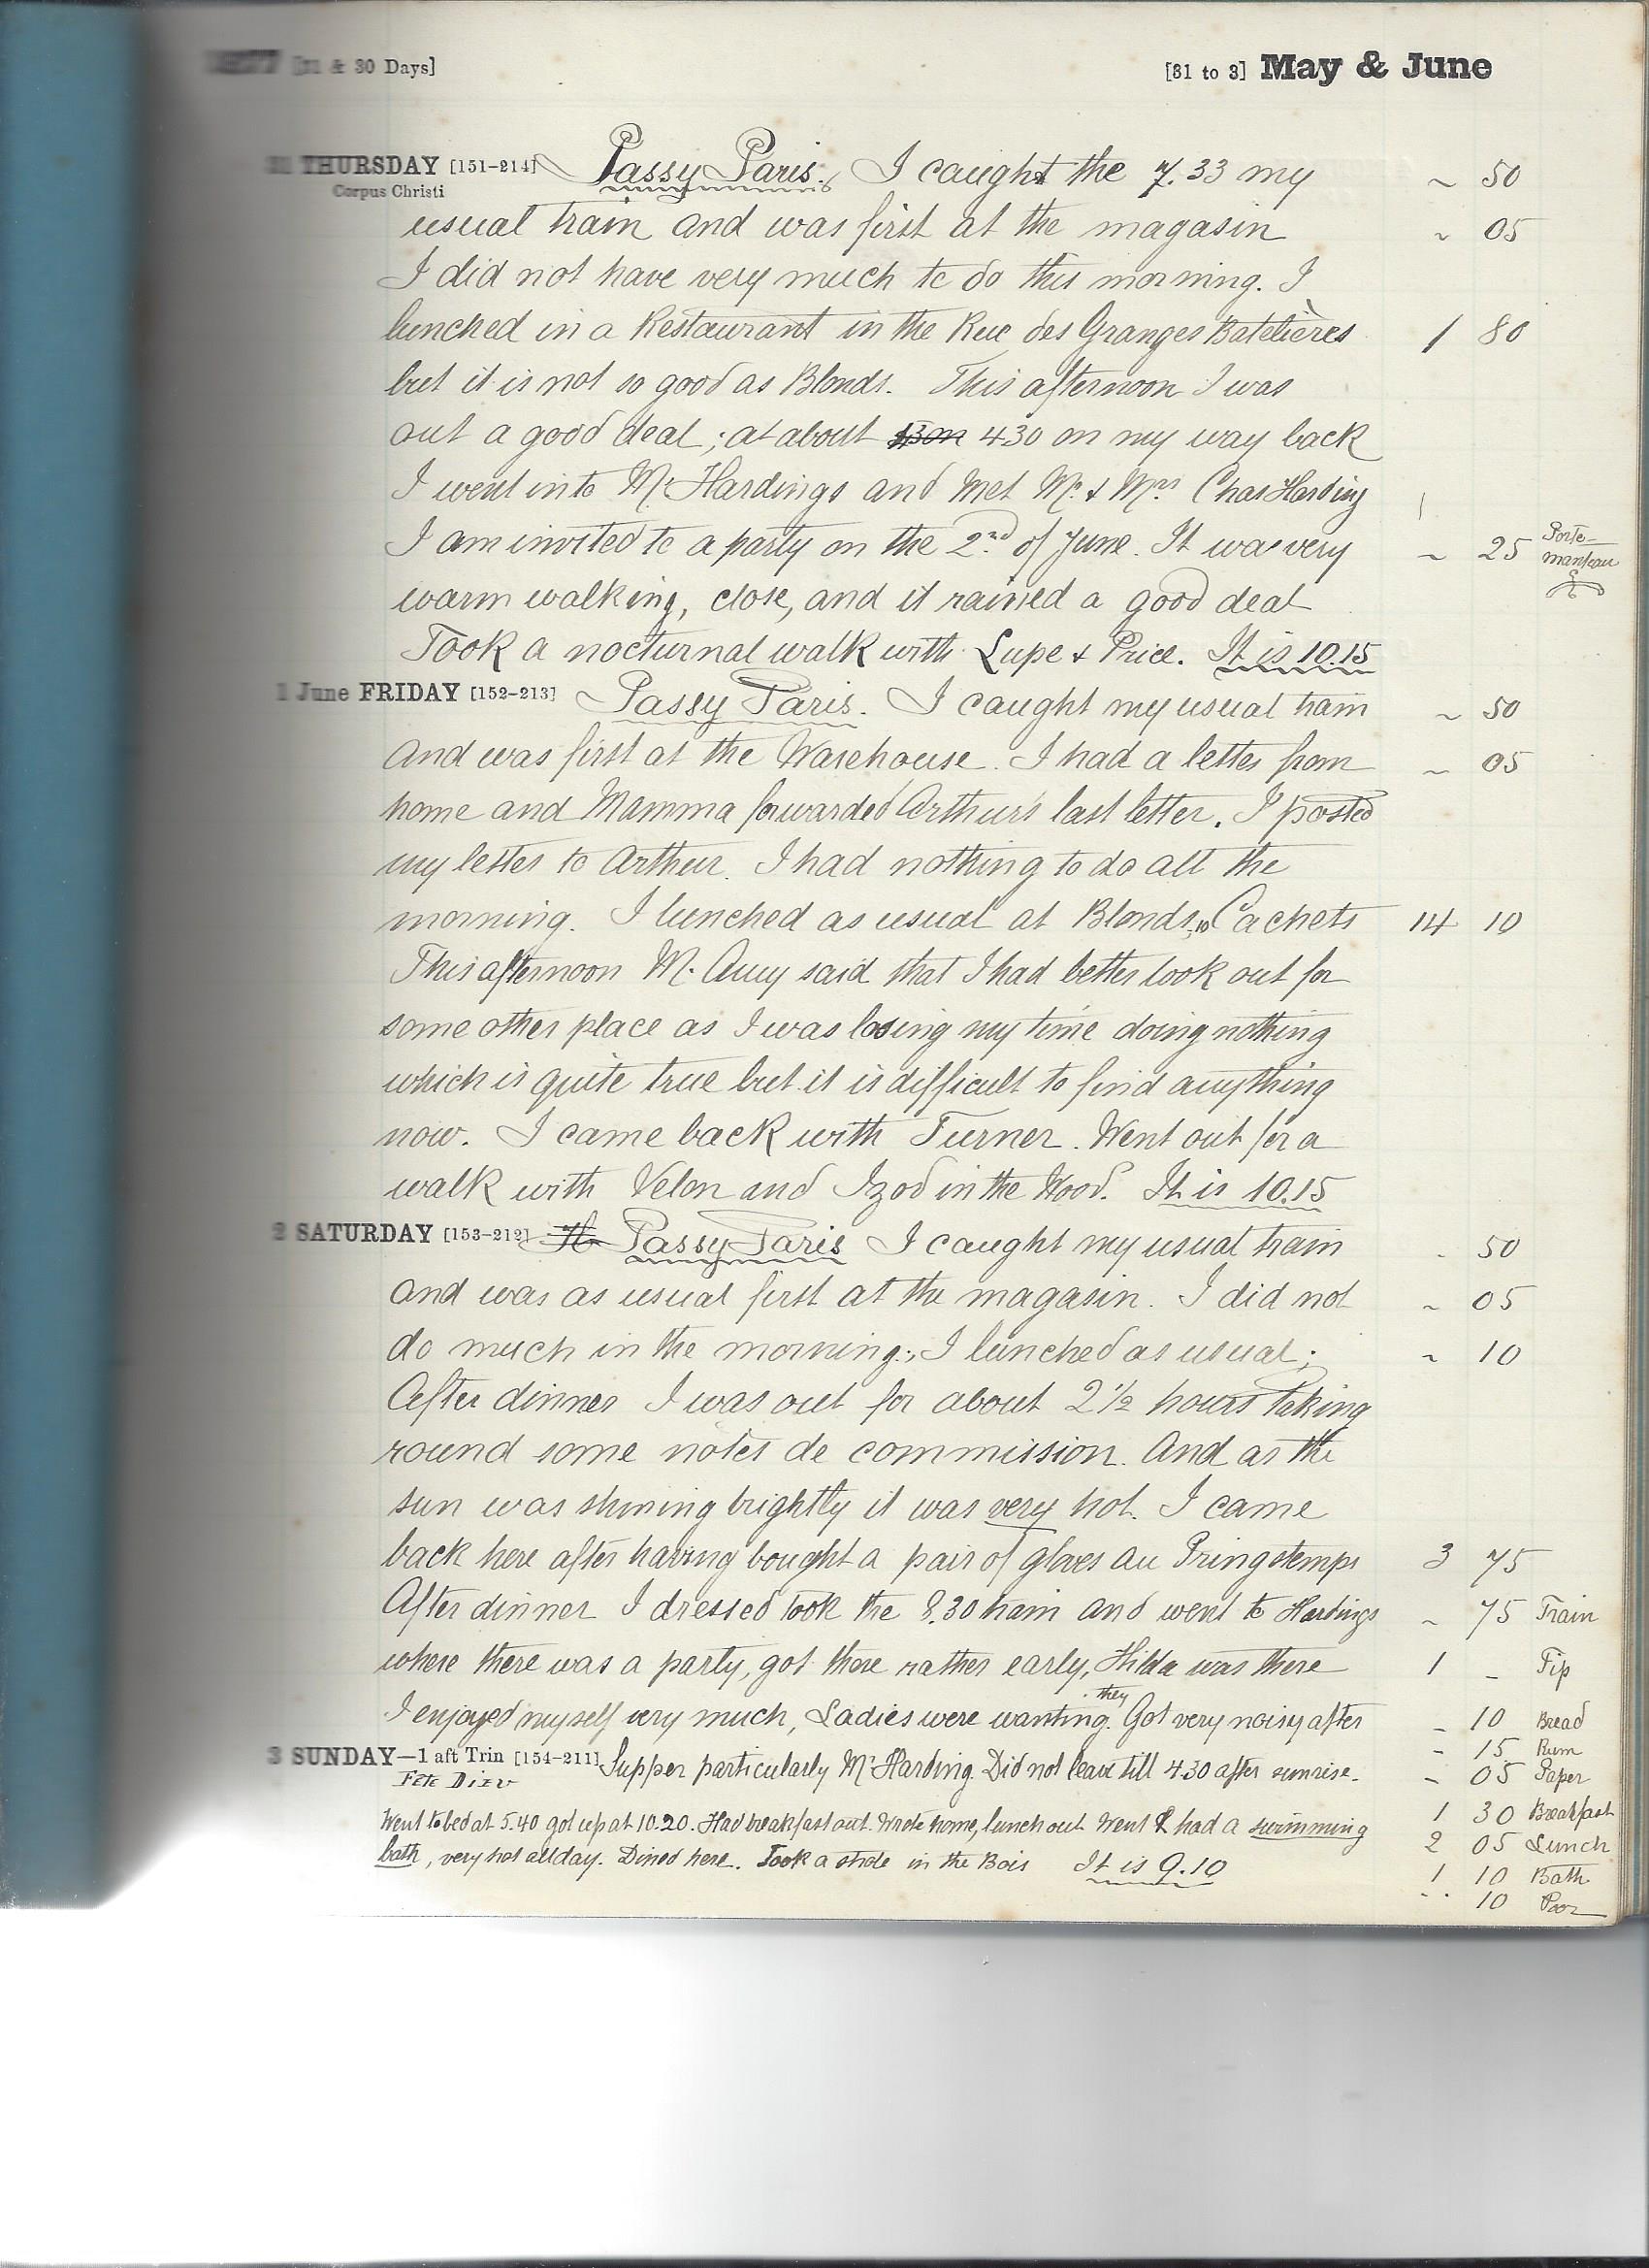 1877 [31 & 30 Days] [31 to 3] May & June
31 THURSDAY [151-214] Passy Paris. I caught the 7.33 my ~ 50
Corpus Christi
usual train and was first at the magasin ~ 05
I did not have very much to do this morning. I
lunched in a Restaurant in the Rue des Granges Batelières 1 80
but it is not so good as Blonds. This afternoon I was
out a good deal; at about 430 on my way back
I went into Mr Hardings and met Mr. & Mrs Chas Harding
I am invited to a party on the 2nd of June. It was very ~ 25 Porte-manteau
warm walking, close, and it rained a good deal
Took a nocturnal walk with Lupe & Price. It is 10.15
1 June FRIDAY [152-213] Passy Paris. I caught my usual train ~ 50
and was first at the Warehouse. I had a letter from ~ 05
home and Mamma forwarded Arthur's last letter. I posted
my letter to Arthur. I had nothing to do all the
morning. I lunched as usual at Blonds, 10 Cachets 14 10
This afternoon M. Auy said that I had better look out for
some other place as I was losing my time doing nothing
which is quite true but it is difficult to find anything
now. I came back with Turner. Went out for a
walk with Velon and Izod in the Wood. It is 10.15
2 SATURDAY [153-212] Passy Paris I caught my usual train - 50
and was as usual first at the magasin. I did not ~ 05
do much in the morning; I lunched as usual; ~ 10
After dinner I was out for about 2½ hours taking
round some notes de commission. And as the
sun was shining brightly it was very hot. I came
back here after having bought a pair of gloves au Pringstemps 3 75
After dinner I dressed took the 8.30 train and went to Hardings ~ 75 Train
where there was a party, got there rather early, Hilda was there 1 - Tip
I enjoyed myself very much, Ladies were wanting. they Got very noisy after - 10 Bread
3 SUNDAY—1 aft Trin [154-211] Supper particularly Mr Harding. Did not leave till 4.30 after sunrise. - 15 Rum
Fête Dieu - 05 Paper
Went to bed at 5.40 got up at 10.20. Had breakfast out. Wrote home, lunch out Went & had a swimming 1 30 Breakfast
bath, very hot all day. Dined here. Took a stole in the Bois It is 9.10 2 05 Lunch
1 10 Bath
10 Poor